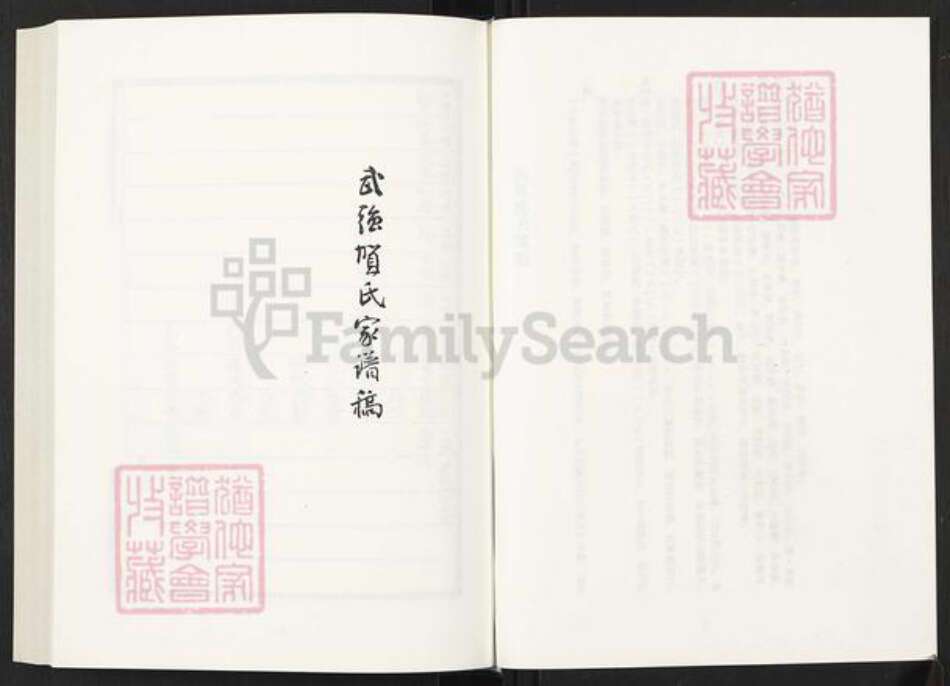 猶他家
譜學會
收藏
武强賀氏家譜稿
FamilySearch
猶他家
譜學會
收藏